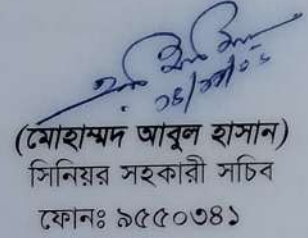 (মোহাম্মদ আবুল হাসান)
সিনিয়র সহকারী সচিব
ফোনঃ ৯৫৫০৩৪১